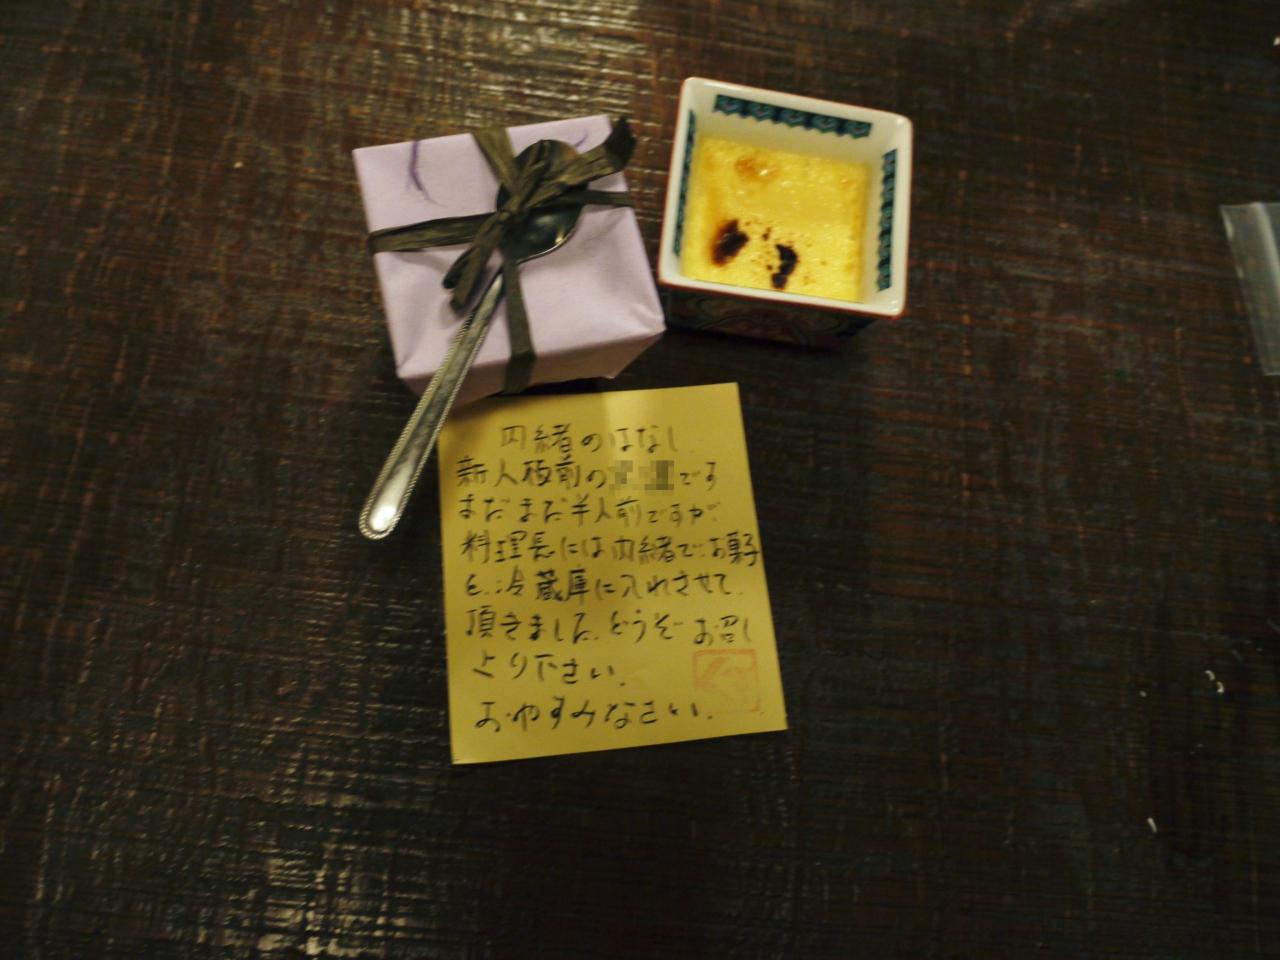 内緒のはなし
新人板前の です
まだまだ半人前ですが、
料理長には内緒で、お菓子
を、冷蔵庫に入れさせて
頂きました。どうぞお召し
とり下さい。
おやすみなさい。